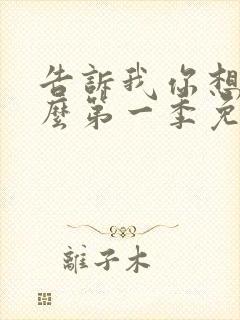 告訴我你想
麼第一季免
離子木